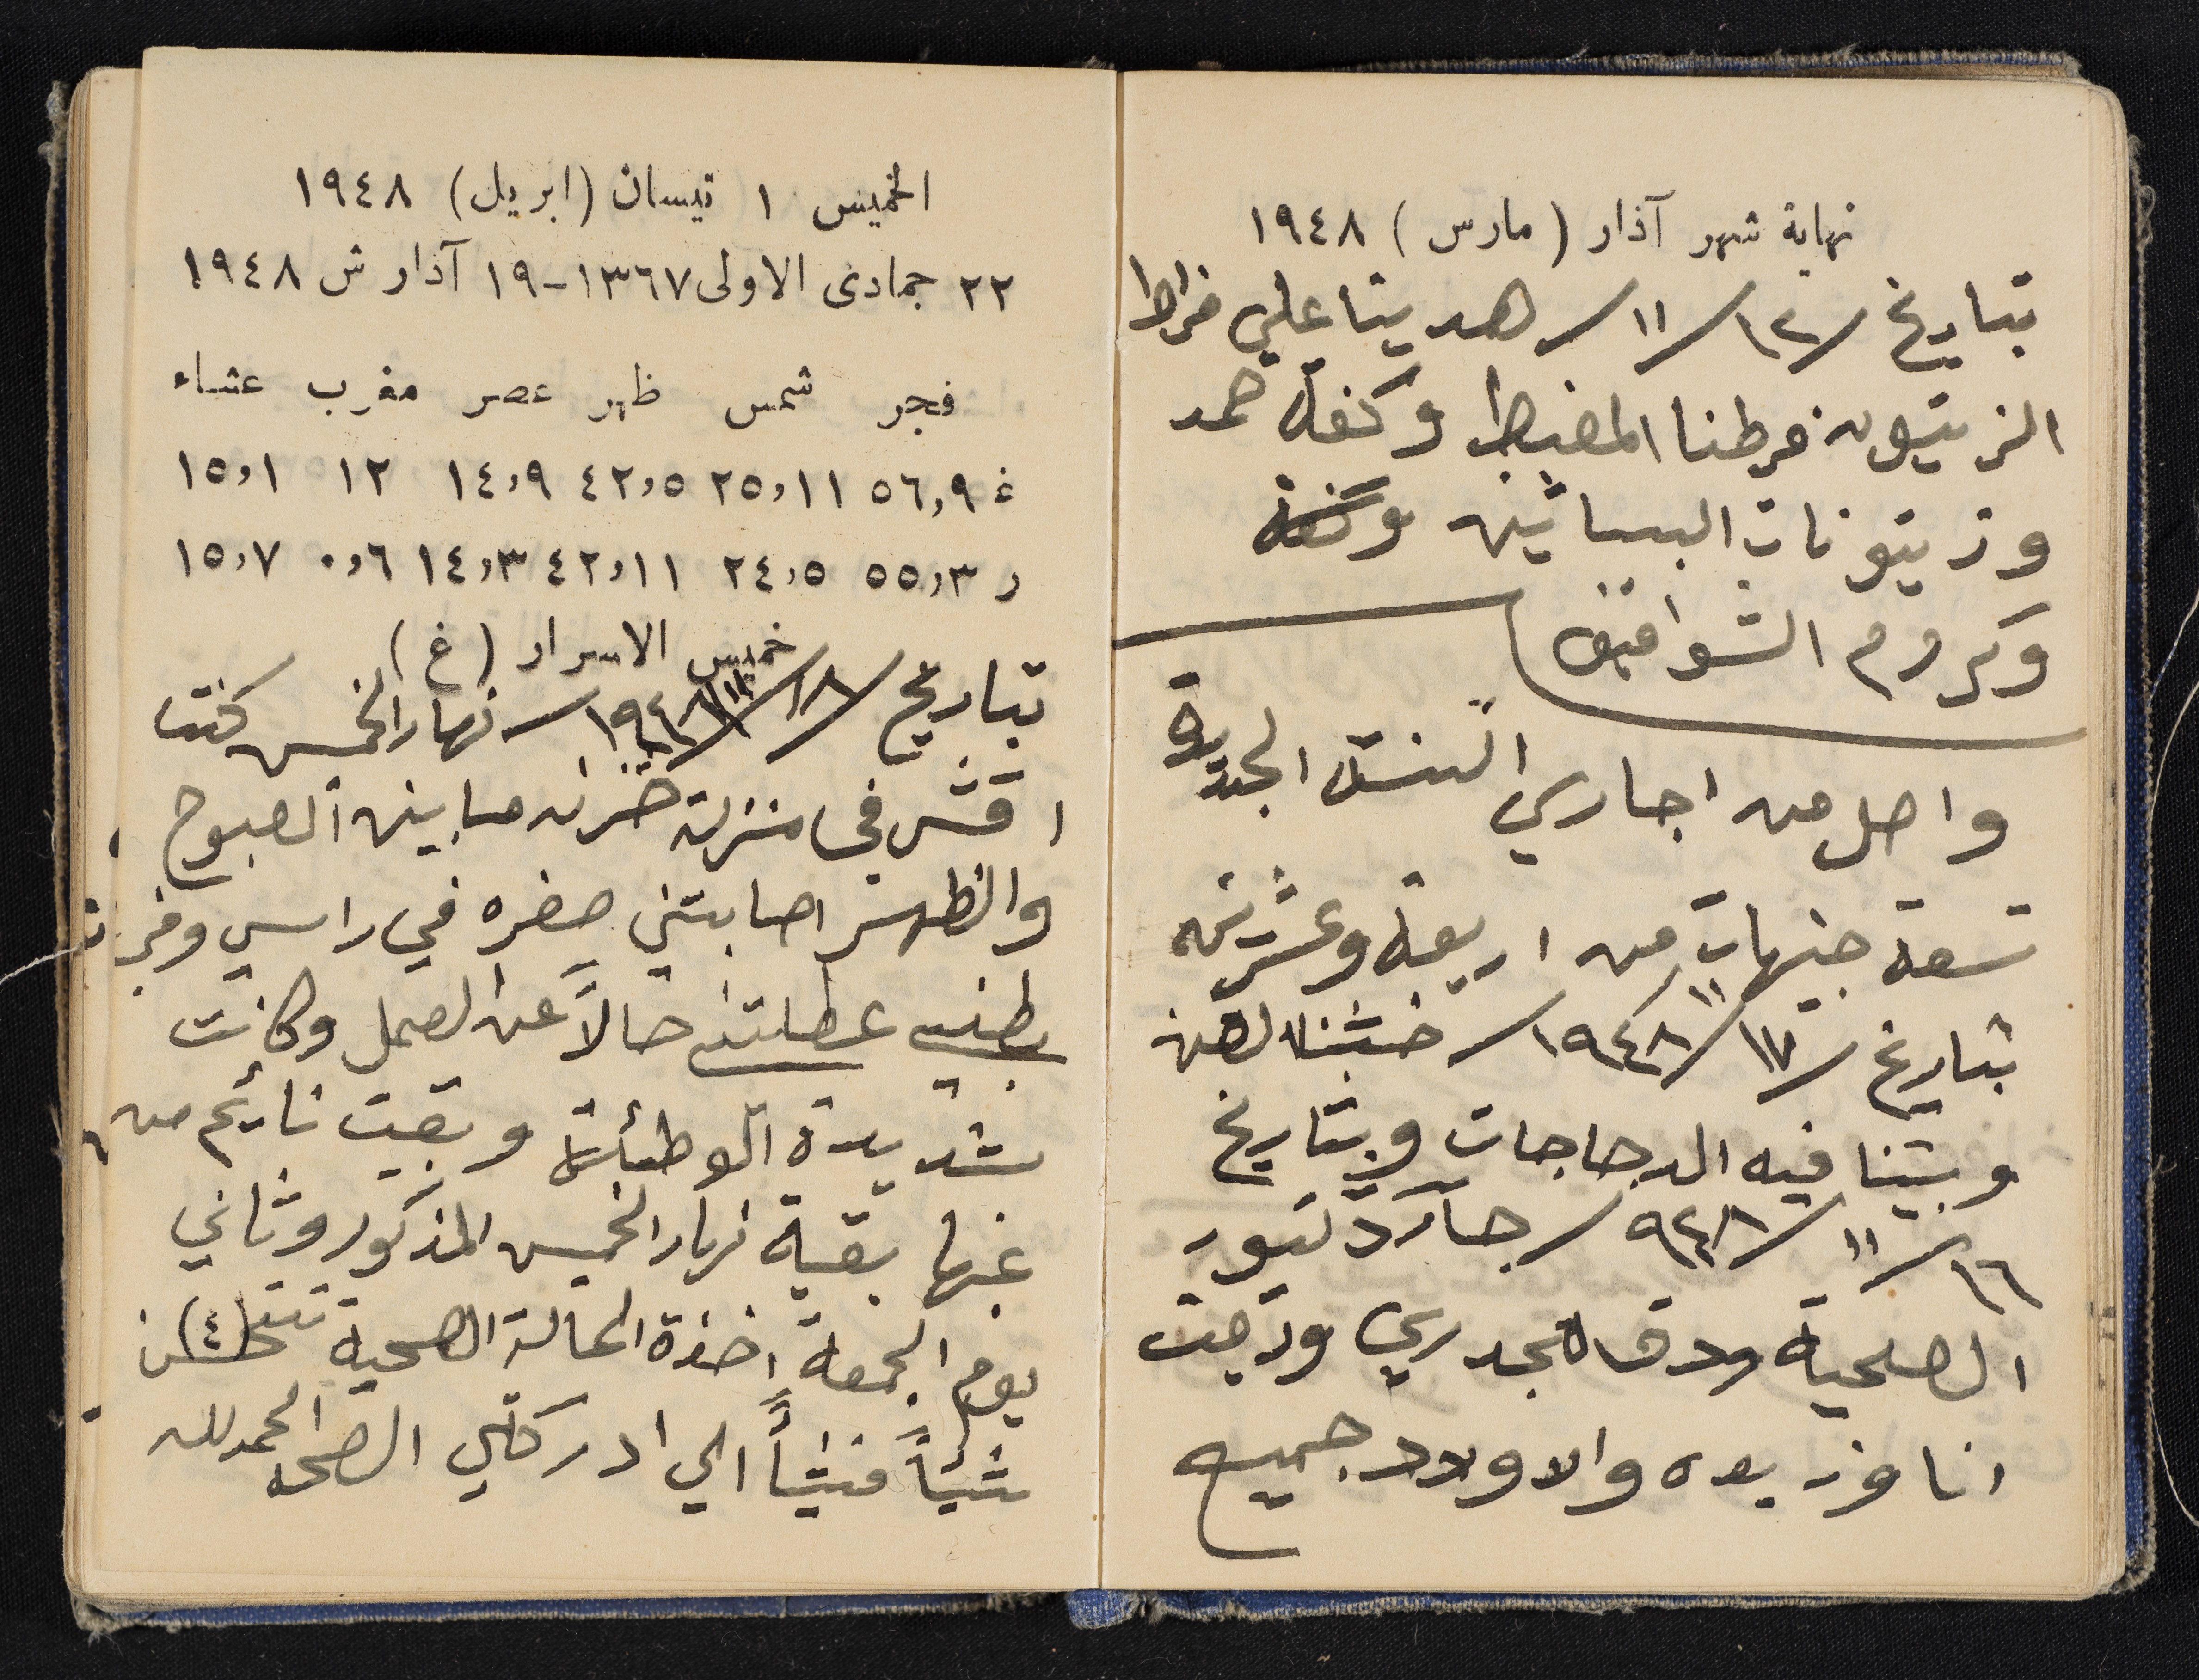 نهاية شهر آذار (مارس) ١٩٤٨
بتاريخ /١٢/١١/ هدينا علي فراط
الزيتون فرطنا المضبط وكفة حمد
وزيتونات البساتين وكفة
وكروم الشوافين
واصل من اجاري السنة الجديدة
تسعة جنيهات من اربعة وعشرين
بتاريخ /١٧/١١/١٩٤٨/ خشبنا لهن
وبيتنا فيه الدجاجات وبتاريخ
١٦/١١/٩٤٨/ جاء دكتور
الصحية ودق الجدري ودقيت
انا وزيده والاولاد جميع
الخميس ١ نيسان (ابريل) ١٩٤٨
٢٢ جمادى الاولى ١٣٦٧-١٩ آذار ش ١٩٤٨
فجر شمس ظهر عصر مغرب عشاء
غ ٥٦,٩ ٢٥,١١ ٤٢,٥ ١٤,٩ ١٢ ١٥,١
ر ٥٥,٣ ٢٤,٥ ٤٢,١١ ١٤,٣ ٠,٦ ١٥,٧
خميس الاسرار (غ)
بتاريخ /١٨/١١/١٩٤٨/ نهار الخميس كنت
اقش في منزلة خزنه مابين الصبوح
والظهر اصابتني صفره في راسي وفي
بطني عطلتني حالاً عن العمل وكانت
شديدة الوطئة وبقيت نايم من
غبها بقية نهار الخميس المذكور وثاني
يوم الجمعة اخذة الحالة الصحية تتحسن (٤)
شيئاً فشيئاً الي ادركتني الصحة الحمد لله